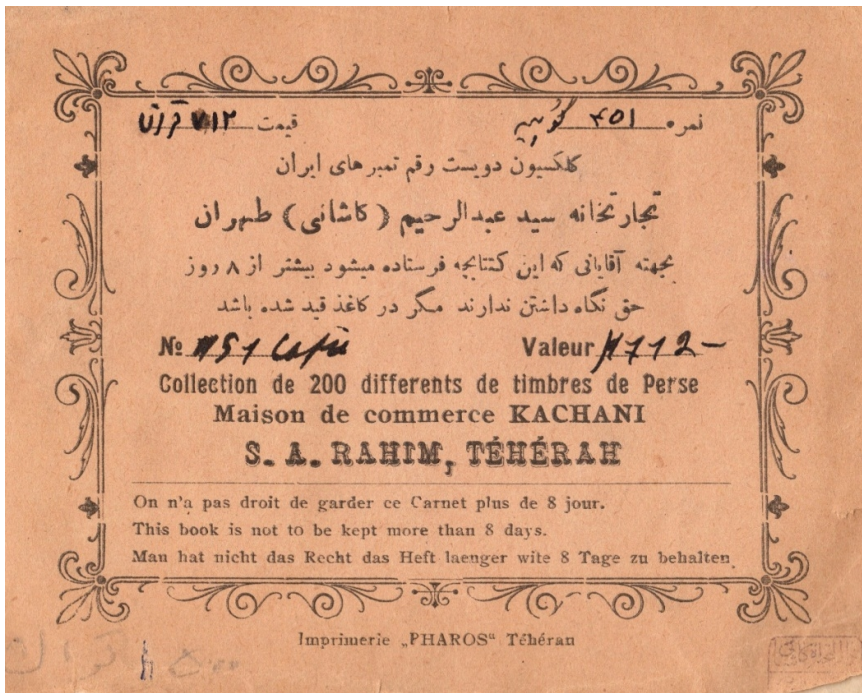 نمره ۴۵۱ کوپیه قیمت ۷۱۲ قران
کلکسیون دویست رقم تمبرهای ایران
تجارتخانه سید عبدالرحیم (کاشانی) طهران
بجهته آقایانی که این کتابچه فرستاده میشود بیشتر از ۸ روز
حق نگاه داشتن ندارند مگر در کاغذ قید شده باشد
№ 451 Valeur 712–
Collection de 200 differents de timbres de Perse
Maison de commerce KACHANI
S. A. RAHIM, TÉHÉRAH
On n'a pas droit de garder ce Carnet plus de 8 jour.
This book is not to be kept more than 8 days.
Man hat nicht das Recht das Heft laenger wite 8 Tage zu behalten
Imprimerie „PHAROS“ Téhéran